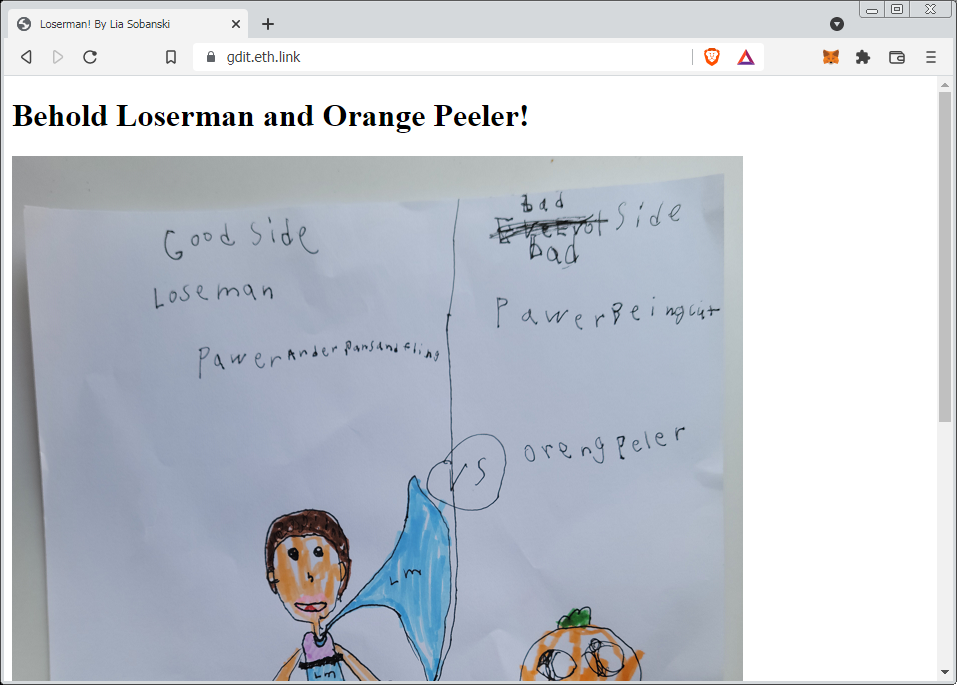 Loserman! By Lia Sobanski
gdit.eth.link
Behold Loserman and Orange Peeler!
Good Side
Loseman
Pawer Ander Pans and fling
LM
LM
VS
bad
Side
bad
Pawer Being cut
oreng Peler